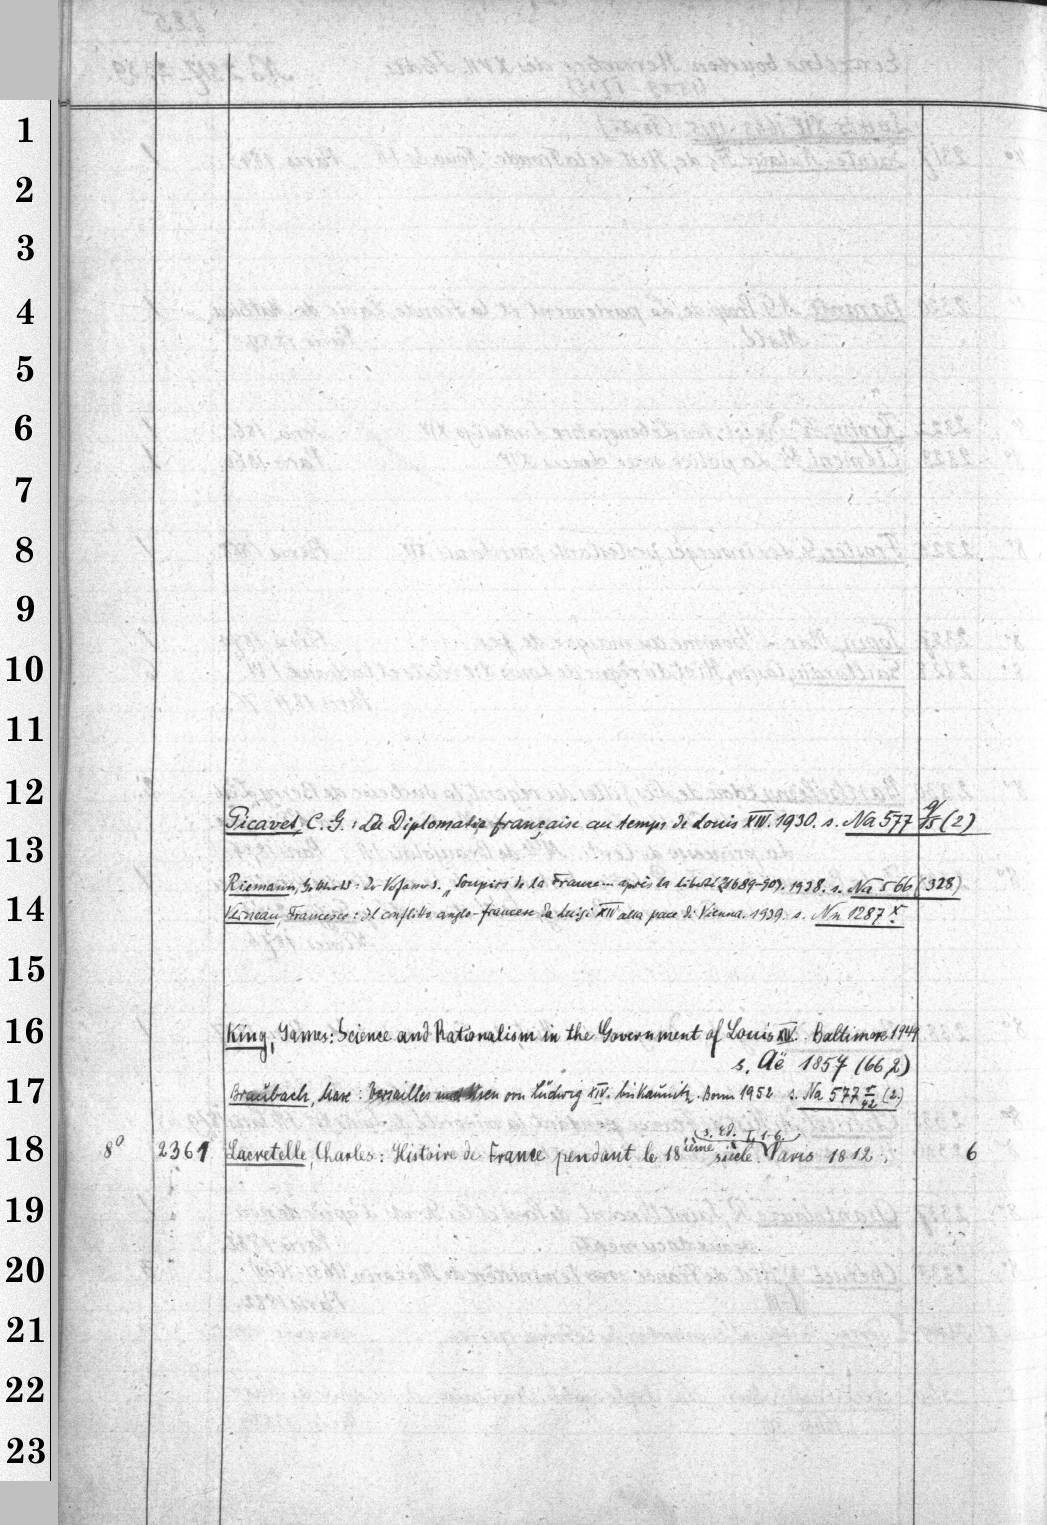 1
2
3
4
5
6
7
8
9
10
11
12
Picavet, C. G.: La Diplomatie française au temps de Louis XIV. 1930. s. Na 577 9/15 (2)
13
Riemann, : Der Verfasser d. „Soupirs de la France... après la liberté" (1689-90). 1938. s. Na 566 (328)
14
Francesco: Il conflitto anglo-francese da Luigi XIV alla pace di Vienna. 1939. s. Nn 1287 x
15
16 King, James: Science and Rationalism in the Government of Louis XIV. Baltimore 1949
s. Aë 1857 (66,2)
17 Braubach, Max: Versailles und Wien von Ludwig XIV. bis Kaunitz. Bonn 1952 s. Na 577 r/42 (2)
3. Ed. T. 1-6.
18 8° 2361 Lacretelle, Charles: Histoire de France pendant le 18ième siècle. Paris 1812. 6
19
20
21
22
23